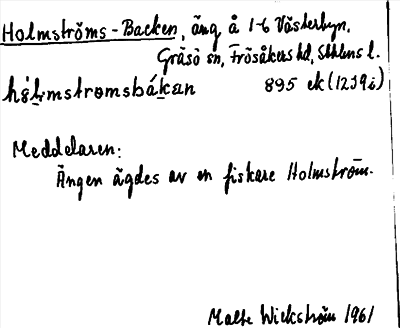 Holmströms-Backen, äng å 1-6 Västerbyn.
Gräsö sn, Frösåkers hd, Sthlms l.
hólmstromsbákan 895 ek (1239i)
Meddelaren:
Ängen ägdes av en fiskare Holmström.
Malte Wickström 1961